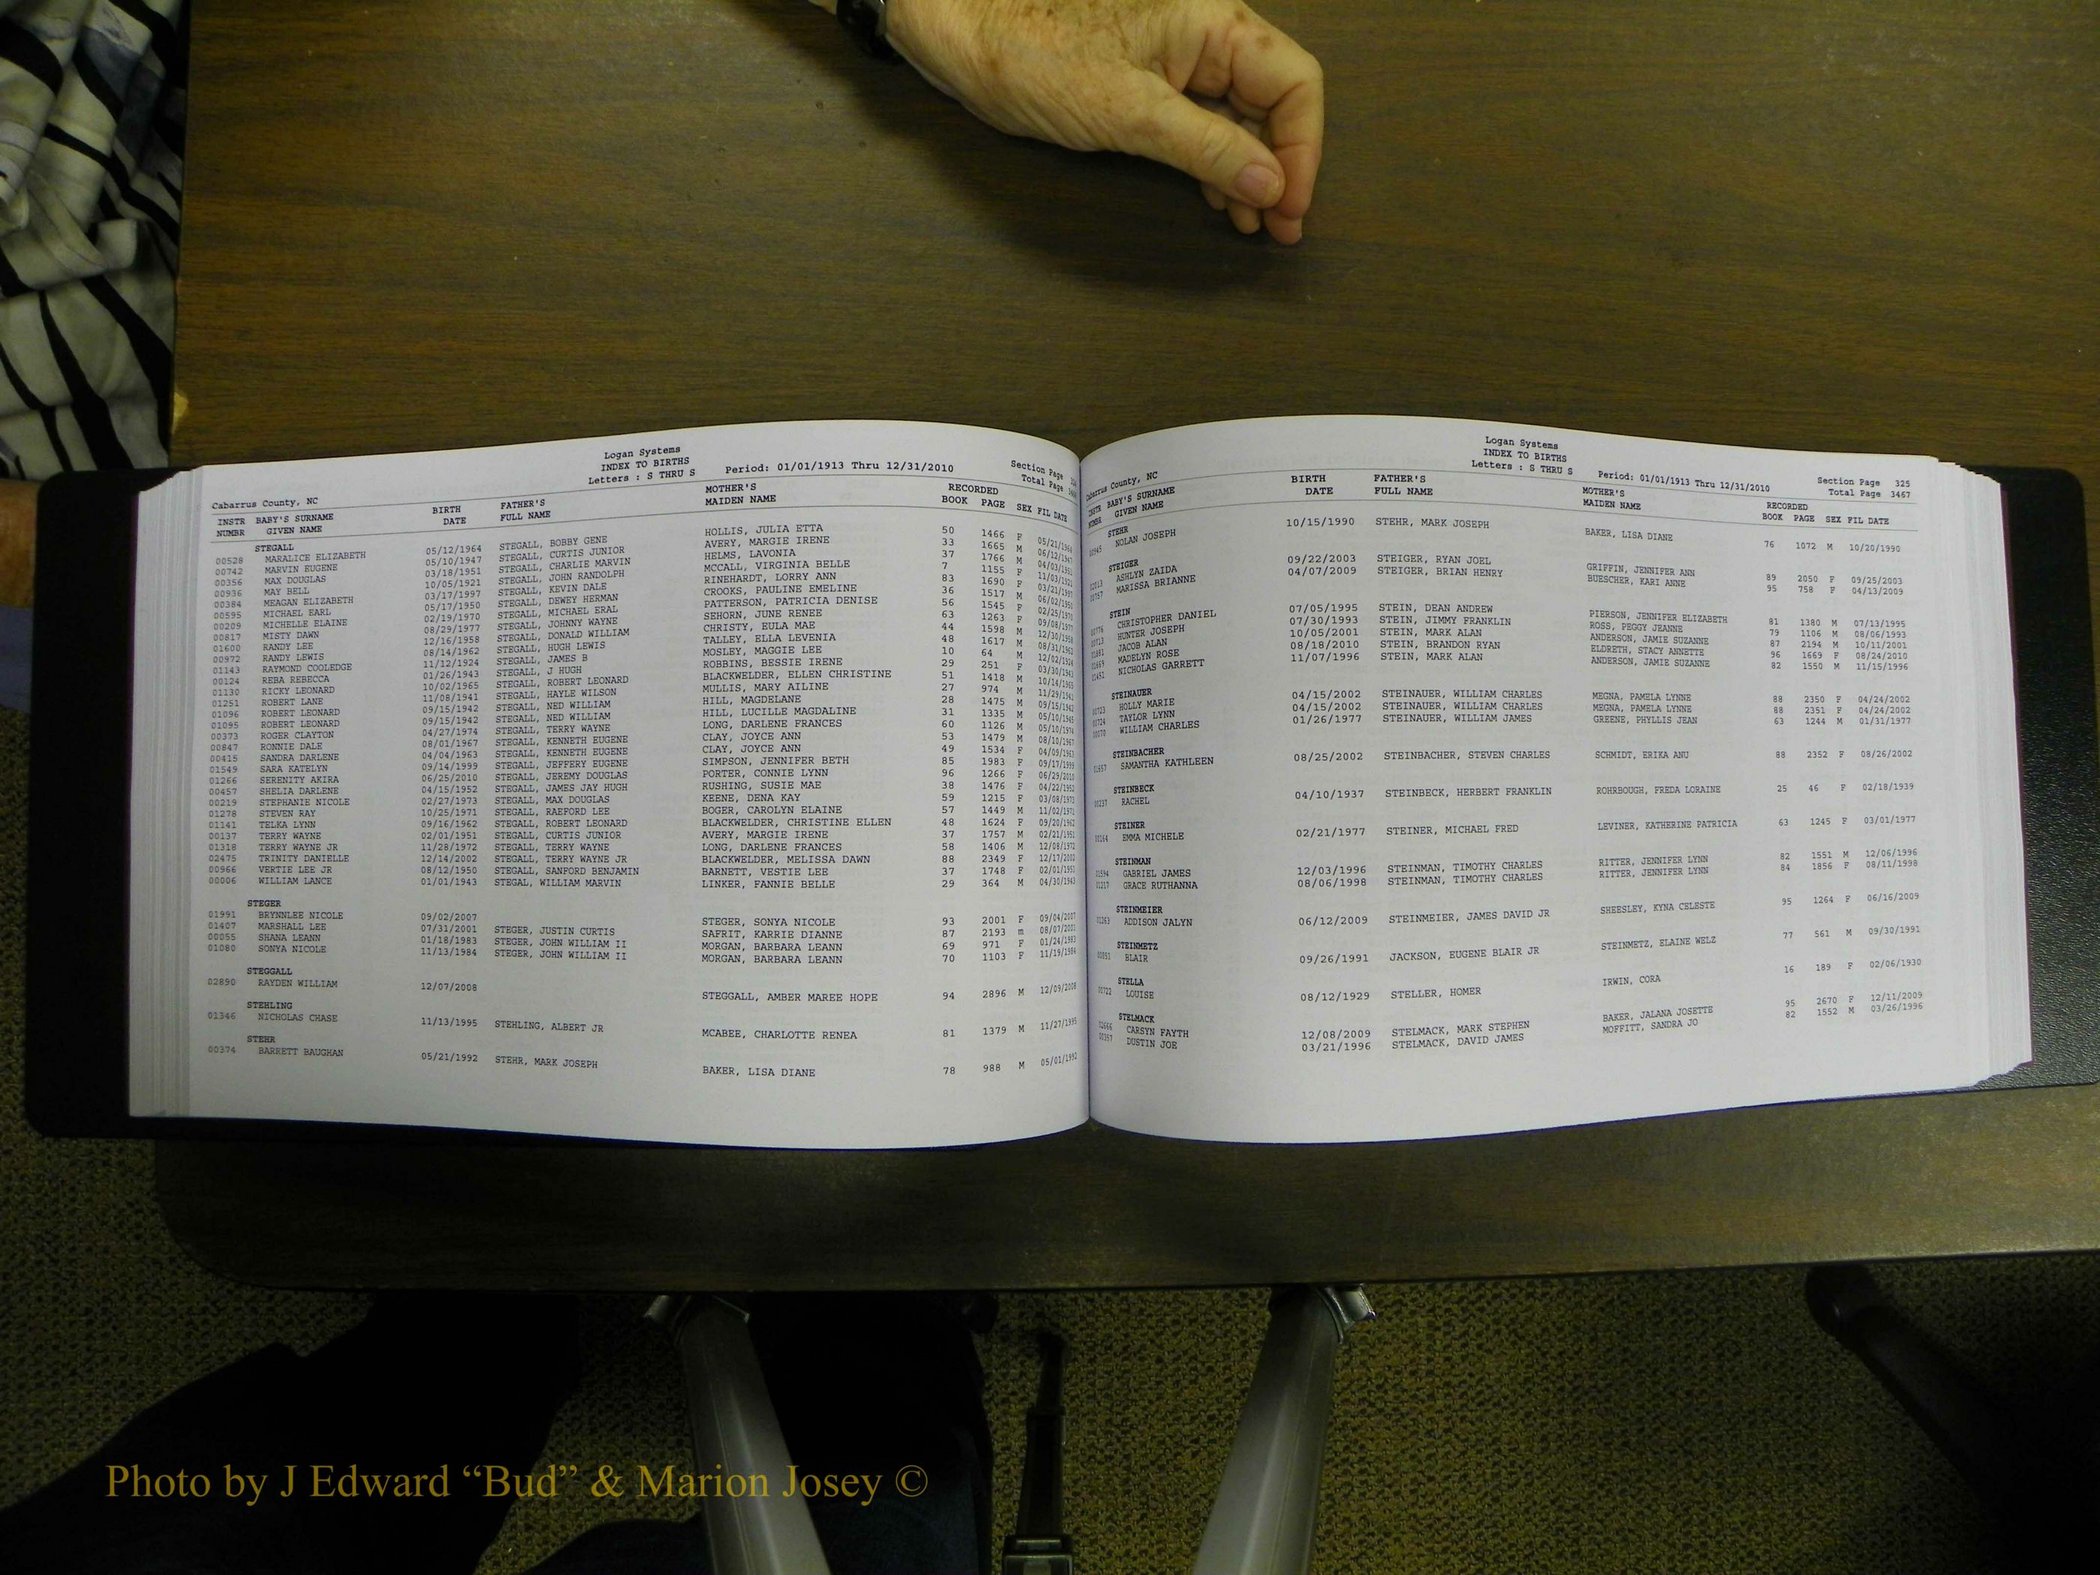 Logan Systems
INDEX TO BIRTHS
Letters : S THRU S Period: 01/01/1913 Thru 12/31/2010 Section Page
Cabarrus County, NC Total Page
INSTR BABY'S SURNAME BIRTH FATHER'S MOTHER'S RECORDED
NUMBR GIVEN NAME DATE FULL NAME MAIDEN NAME BOOK PAGE SEX FIL DATE
STEGALL
00528 MARALICE ELIZABETH 05/12/1964 STEGALL, BOBBY GENE HOLLIS, JULIA ETTA 50 1466 F 05/21/1964
00742 MARVIN EUGENE 05/10/1947 STEGALL, CURTIS JUNIOR AVERY, MARGIE IRENE 33 1665 M 06/12/1947
00356 MAX DOUGLAS 03/18/1951 STEGALL, CHARLIE MARVIN HELMS, LAVONIA 37 1766 M 04/03/1951
00936 MAY BELL 10/05/1921 STEGALL, JOHN RANDOLPH MCCALL, VIRGINIA BELLE 7 1155 F 11/03/1921
00384 MEAGAN ELIZABETH 03/17/1997 STEGALL, KEVIN DALE RINEHARDT, LORRY ANN 83 1690 F 03/21/1997
00595 MICHAEL EARL 05/17/1950 STEGALL, DEWEY HERMAN CROOKS, PAULINE EMELINE 36 1517 M 06/02/1950
00209 MICHELLE ELAINE 02/19/1970 STEGALL, MICHAEL ERAL PATTERSON, PATRICIA DENISE 56 1545 F 02/25/1970
00817 MISTY DAWN 08/29/1977 STEGALL, JOHNNY WAYNE SEHORN, JUNE RENEE 63 1263 F 09/08/1977
01600 RANDY LEE 12/16/1958 STEGALL, DONALD WILLIAM CHRISTY, EULA MAE 44 1598 M 12/30/1958
00972 RANDY LEWIS 08/14/1962 STEGALL, HUGH LEWIS TALLEY, ELLA LEVENIA 48 1617 M 08/31/1962
01143 RAYMOND COOLEDGE 11/12/1924 STEGALL, JAMES B MOSLEY, MAGGIE LEE 10 64 M 12/02/1924
00124 REBA REBECCA 01/26/1943 STEGALL, J HUGH ROBBINS, BESSIE IRENE 29 251 F 03/30/1943
01130 RICKY LEONARD 10/02/1965 STEGALL, ROBERT LEONARD BLACKWELDER, ELLEN CHRISTINE 51 1418 M 10/14/1965
01251 ROBERT LANE 11/08/1941 STEGALL, HAYLE WILSON MULLIS, MARY AILINE 27 974 M 11/29/1941
01096 ROBERT LEONARD 09/15/1942 STEGALL, NED WILLIAM HILL, MAGDELANE 28 1475 M 09/15/1942
01095 ROBERT LEONARD 09/15/1942 STEGALL, NED WILLIAM HILL, LUCILLE MAGDALINE 31 1335 M 05/10/1945
00373 ROGER CLAYTON 04/27/1974 STEGALL, TERRY WAYNE LONG, DARLENE FRANCES 60 1126 M 05/10/1974
00847 RONNIE DALE 08/01/1967 STEGALL, KENNETH EUGENE CLAY, JOYCE ANN 53 1479 M 08/10/1967
00415 SANDRA DARLENE 04/04/1963 STEGALL, KENNETH EUGENE CLAY, JOYCE ANN 49 1534 F 04/09/1963
01549 SARA KATELYN 09/14/1999 STEGALL, JEFFERY EUGENE SIMPSON, JENNIFER BETH 85 1983 F 09/17/1999
01266 SERENITY AKIRA 06/25/2010 STEGALL, JEREMY DOUGLAS PORTER, CONNIE LYNN 96 1266 F 06/29/2010
00457 SHELIA DARLENE 04/15/1952 STEGALL, JAMES JAY HUGH RUSHING, SUSIE MAE 38 1476 F 04/22/1952
00219 STEPHANIE NICOLE 02/27/1973 STEGALL, MAX DOUGLAS KEENE, DENA KAY 59 1215 F 03/08/1973
01278 STEVEN RAY 10/25/1971 STEGALL, RAEFORD LEE BOGER, CAROLYN ELAINE 57 1449 M 11/02/1971
01141 TELKA LYNN 09/16/1962 STEGALL, ROBERT LEONARD BLACKWELDER, CHRISTINE ELLEN 48 1624 F 09/20/1962
00137 TERRY WAYNE 02/01/1951 STEGALL, CURTIS JUNIOR AVERY, MARGIE IRENE 37 1757 M 02/21/1951
01318 TERRY WAYNE JR 11/28/1972 STEGALL, TERRY WAYNE LONG, DARLENE FRANCES 58 1406 M 12/08/1972
02475 TRINITY DANIELLE 12/14/2002 STEGALL, TERRY WAYNE JR BLACKWELDER, MELISSA DAWN 88 2349 F 12/17/2002
00966 VERTIE LEE JR 08/12/1950 STEGALL, SANFORD BENJAMIN BARNETT, VESTIE LEE 37 1748 F 02/01/1951
00006 WILLIAM LANCE 01/01/1943 STEGAL, WILLIAM MARVIN LINKER, FANNIE BELLE 29 364 M 04/30/1943
STEGER
01991 BRYNNLEE NICOLE 09/02/2007 STEGER, SONYA NICOLE 93 2001 F 09/04/2007
01407 MARSHALL LEE 07/31/2001 STEGER, JUSTIN CURTIS SAFRIT, KARRIE DIANNE 87 2193 m 08/07/2001
00055 SHANA LEANN 01/18/1983 STEGER, JOHN WILLIAM II MORGAN, BARBARA LEANN 69 971 F 01/24/1983
01080 SONYA NICOLE 11/13/1984 STEGER, JOHN WILLIAM II MORGAN, BARBARA LEANN 70 1103 F 11/19/1984
STEGGALL
02890 RAYDEN WILLIAM 12/07/2008 STEGGALL, AMBER MAREE HOPE 94 2896 M 12/09/2008
STEHLING
01346 NICHOLAS CHASE 11/13/1995 STEHLING, ALBERT JR MCABEE, CHARLOTTE RENEA 81 1379 M 11/27/1995
STEHR
00374 BARRETT BAUGHAN 05/21/1992 STEHR, MARK JOSEPH BAKER, LISA DIANE 78 988 M 05/01/1992
Logan Systems
INDEX TO BIRTHS
Letters : S THRU S Period: 01/01/1913 Thru 12/31/2010 Section Page 325
Cabarrus County, NC Total Page 3467
INSTR BABY'S SURNAME BIRTH FATHER'S MOTHER'S RECORDED
NUMBR GIVEN NAME DATE FULL NAME MAIDEN NAME BOOK PAGE SEX FIL DATE
STEHR
NOLAN JOSEPH 10/15/1990 STEHR, MARK JOSEPH BAKER, LISA DIANE 76 1072 M 10/20/1990
STEIGER
ASHLYN ZAIDA 09/22/2003 STEIGER, RYAN JOEL GRIFFIN, JENNIFER ANN 89 2050 F 09/25/2003
MARISSA BRIANNE 04/07/2009 STEIGER, BRIAN HENRY BUESCHER, KARI ANNE 95 758 F 04/13/2009
STEIN
CHRISTOPHER DANIEL 07/05/1995 STEIN, DEAN ANDREW PIERSON, JENNIFER ELIZABETH 81 1380 M 07/13/1995
HUNTER JOSEPH 07/30/1993 STEIN, JIMMY FRANKLIN ROSS, PEGGY JEANNE 79 1106 M 08/06/1993
JACOB ALAN 10/05/2001 STEIN, MARK ALAN ANDERSON, JAMIE SUZANNE 87 2194 M 10/11/2001
MADELYN ROSE 08/18/2010 STEIN, BRANDON RYAN ELDRETH, STACY ANNETTE 96 1669 F 08/24/2010
NICHOLAS GARRETT 11/07/1996 STEIN, MARK ALAN ANDERSON, JAMIE SUZANNE 82 1550 M 11/15/1996
STEINAUER
00723 HOLLY MARIE 04/15/2002 STEINAUER, WILLIAM CHARLES MEGNA, PAMELA LYNNE 88 2350 F 04/24/2002
00724 TAYLOR LYNN 04/15/2002 STEINAUER, WILLIAM CHARLES MEGNA, PAMELA LYNNE 88 2351 F 04/24/2002
00070 WILLIAM CHARLES 01/26/1977 STEINAUER, WILLIAM JAMES GREENE, PHYLLIS JEAN 63 1244 M 01/31/1977
STEINBACHER
SAMANTHA KATHLEEN 08/25/2002 STEINBACHER, STEVEN CHARLES SCHMIDT, ERIKA ANU 88 2352 F 08/26/2002
STEINBECK
RACHEL 04/10/1937 STEINBECK, HERBERT FRANKLIN ROHRBOUGH, FREDA LORAINE 25 46 F 02/18/1939
STEINER
EMMA MICHELE 02/21/1977 STEINER, MICHAEL FRED LEVINER, KATHERINE PATRICIA 63 1245 F 03/01/1977
STEINMAN
GABRIEL JAMES 12/03/1996 STEINMAN, TIMOTHY CHARLES RITTER, JENNIFER LYNN 82 1551 M 12/06/1996
GRACE RUTHANNA 08/06/1998 STEINMAN, TIMOTHY CHARLES RITTER, JENNIFER LYNN 84 1856 F 08/11/1998
STEINMEIER
ADDISON JALYN 06/12/2009 STEINMEIER, JAMES DAVID JR SHEESLEY, KYNA CELESTE 95 1264 F 06/16/2009
STEINMETZ
BLAIR 09/26/1991 JACKSON, EUGENE BLAIR JR STEINMETZ, ELAINE WELZ 77 561 M 09/30/1991
STELLA
LOUISE 08/12/1929 STELLER, HOMER IRWIN, CORA 16 189 F 02/06/1930
STELMACK
CARSYN FAYTH 12/08/2009 STELMACK, MARK STEPHEN BAKER, JALANA JOSETTE 95 2670 F 12/11/2009
DUSTIN JOE 03/21/1996 STELMACK, DAVID JAMES MOFFITT, SANDRA JO 82 1552 M 03/26/1996
Photo by J Edward “Bud” & Marion Josey ©